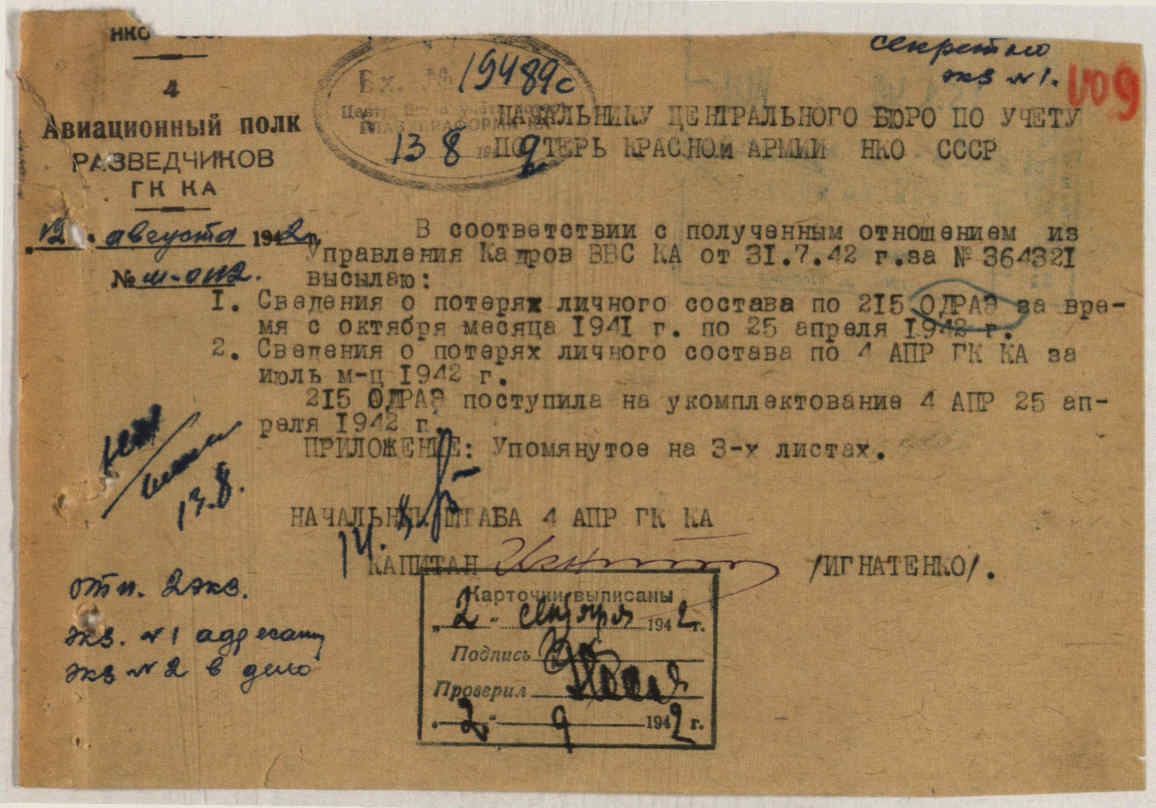 НКО СССР
4
Авиационный полк
РАЗВЕДЧИКОВ
ГК КА
"12" августа 1942 г.
№
Вх. № 19489с
13 8 2
секретно
экз №1.
109
НАЧАЛЬНИКУ ЦЕНТРАЛЬНОГО БЮРО ПО УЧЕТУ
ПОТЕРЬ КРАСНОЙ АРМИИ НКО СССР
В соответствии с полученным отношением из
Управления Кадров ВВС КА от 31.7.42 г.за № 364321
высылаю:
1. Сведения о потерях личного состава по 215 ОДРАЭ за вре-
мя с октября месяца 1941 г. по 25 апреля 1942 г.
2. Сведения о потерях личного состава по 4 АПР ГК КА за
июль м-ц 1942 г.
215 ОДРАЭ поступила на укомплектование 4 АПР 25 ап-
реля 1942 г.
ПРИЛОЖЕНИЕ: Упомянутое на 3-х листах.
13.8.
14.8
НАЧАЛЬНИК ШТАБА 4 АПР ГК КА
КАПИТАН /ИГНАТЕНКО/.
отп. 2 экз.
экз. №1 адресату
экз №2 в дело
Карточки выписаны
"2" сентября 1942 г.
Подпись
Проверил
"2" 9 1942 г.